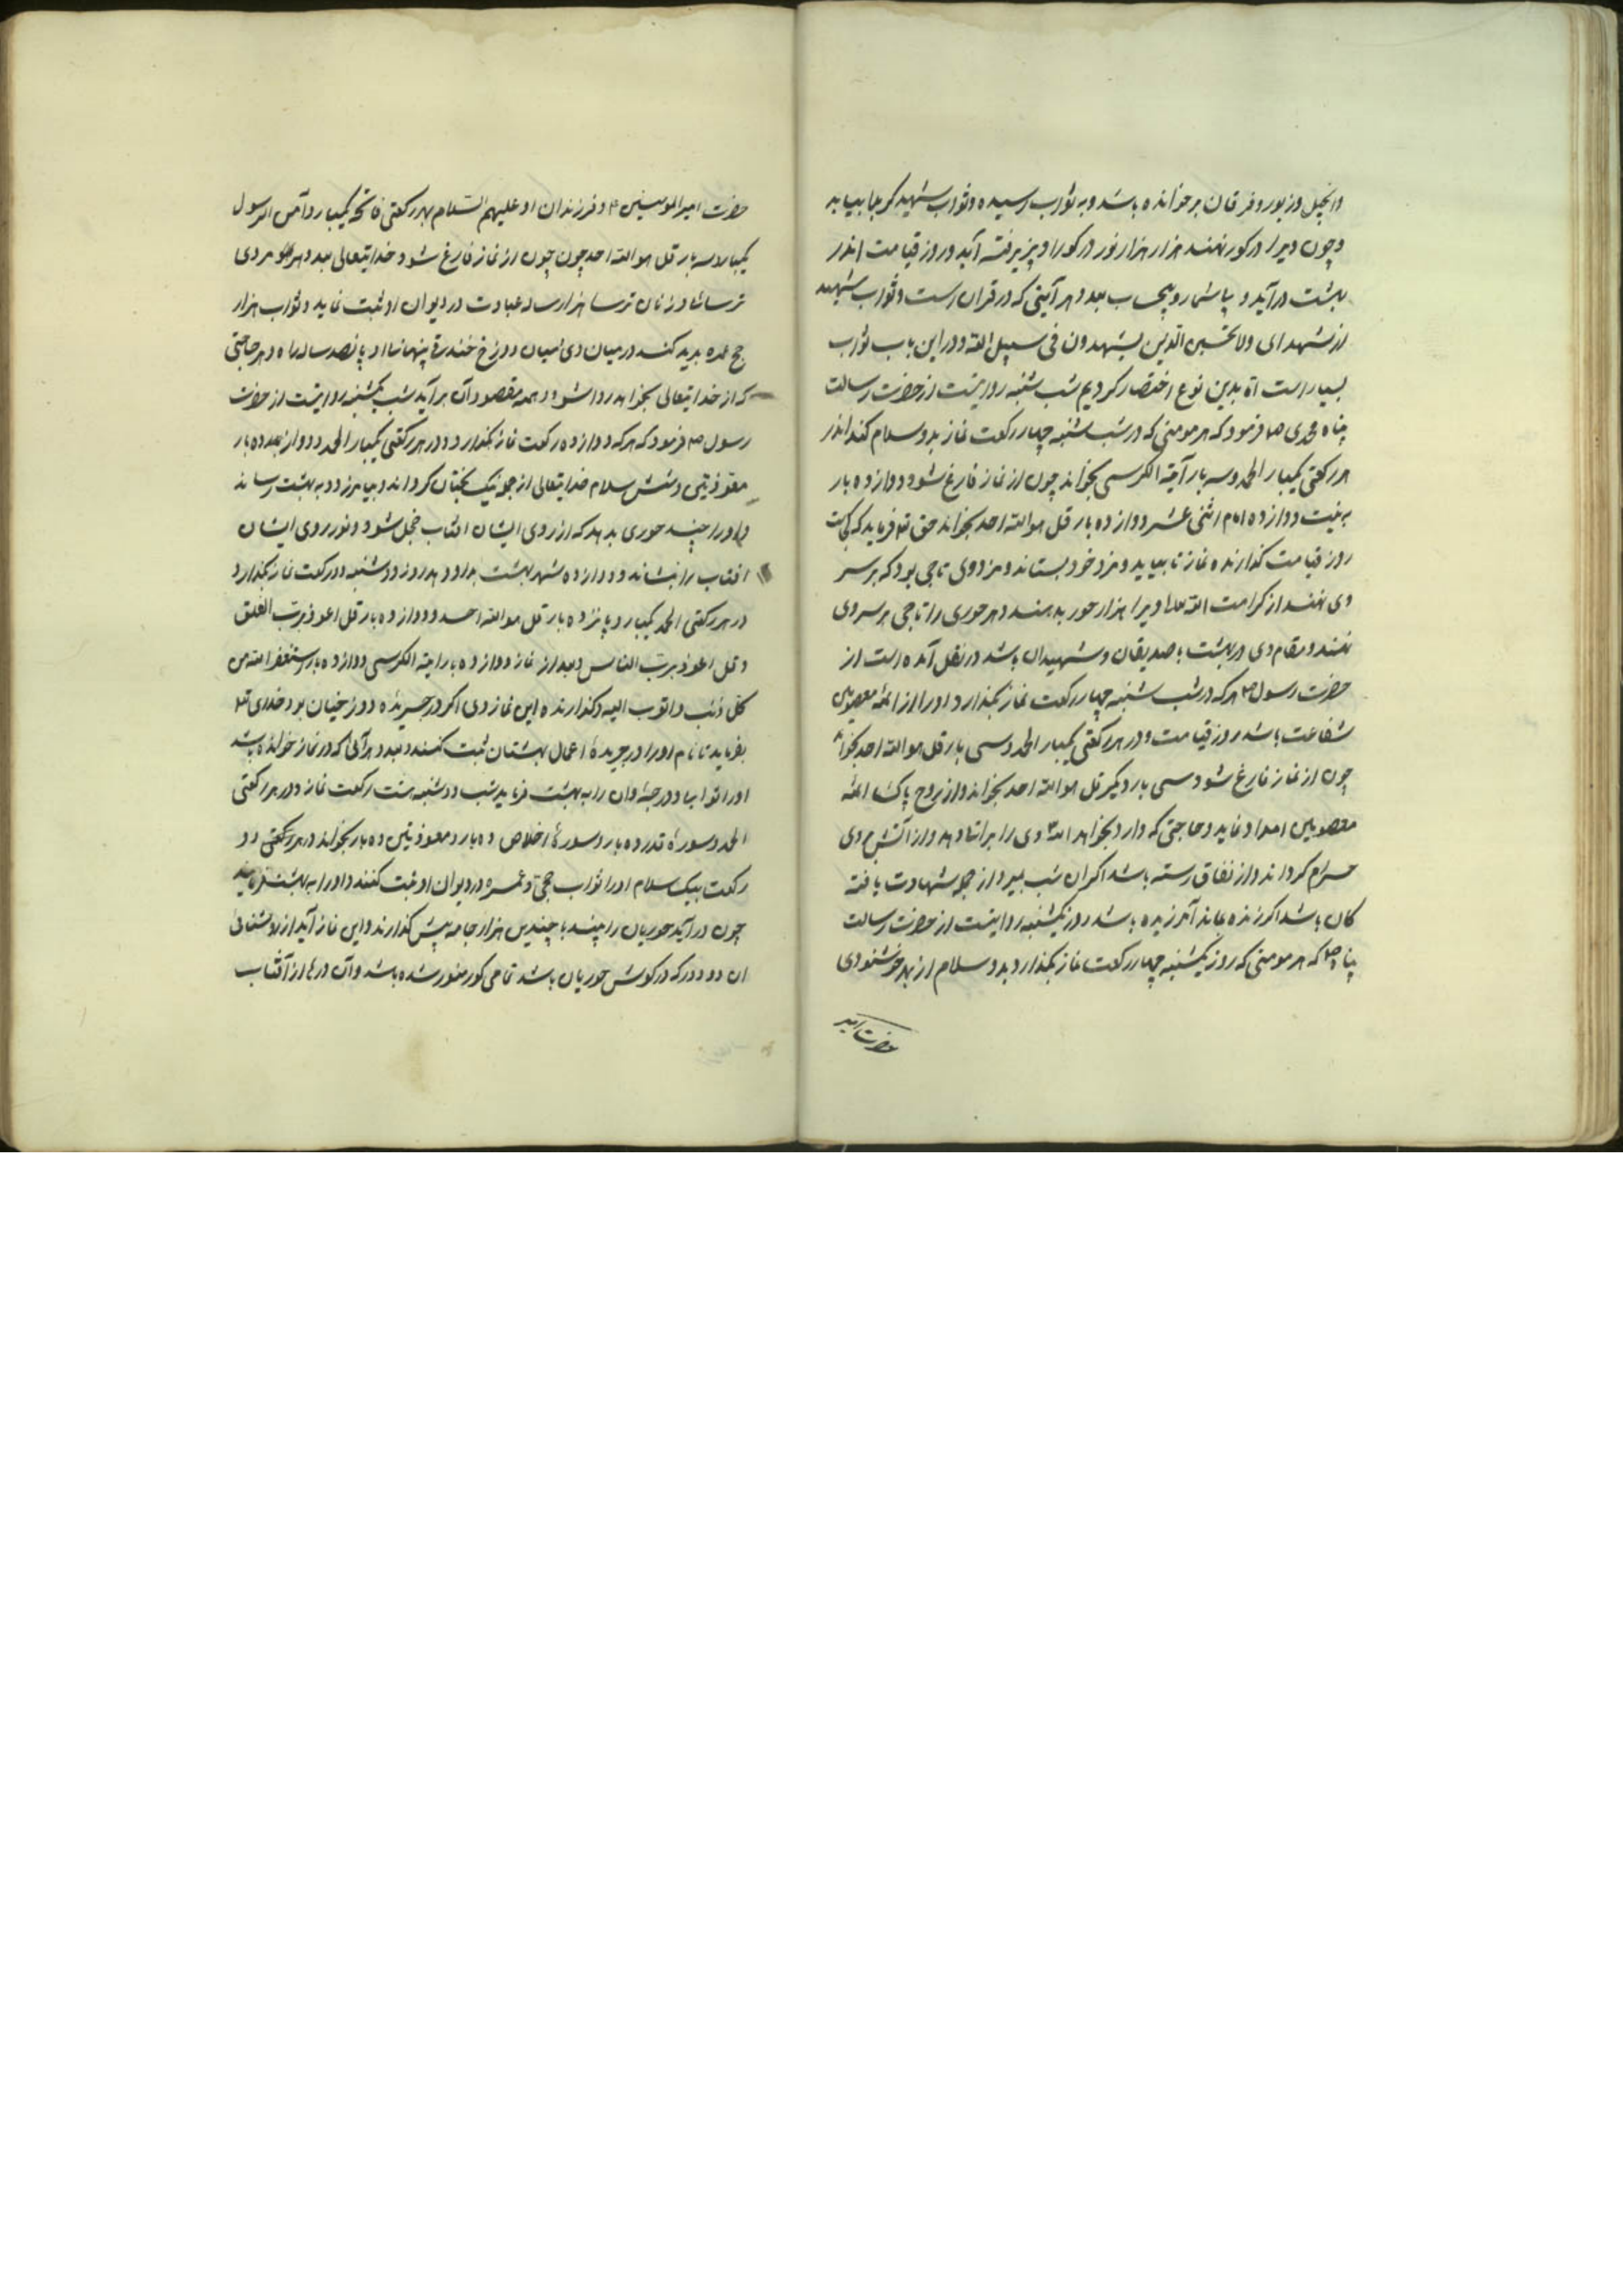 وانجیل وزبور وفرقان برخوانده باشد وبه ثواب رسیده وثواب شهید کربلا بیابد
وچون ویرا در کور نهند هزار هزار نور در کور او پزیرفته آید وروز قیامت اندر
بهشت درآید و یا شمار وبیحساب بعدد هر آیتی که در قران است وثواب شهید
از شهدای ولا تحسبن الذین یشهدون فی سبیل الله ودر این باب ثواب
بسیار است اما بدین نوع اختصار کردیم شب شنبه روایتست از حضرت رسالت
پناه محمدی ص فرمود که هر مومنی که در شب شنبه چهار رکعت نماز بدو سلام کند اندر
هر رکعتی یکبار الحمد وسه بار آیة الکرسی بخواند چون از نماز فارغ شود دوازده بار
به نیت دوازده امام اثنی عشر دوازده بار قل هو الله احد بخواند حق تع فرماید که کجاست
روز قیامت کذارنده نماز تا بیاید ومزد خود بستاند ومزد وی تاجی بود که بر سر
وی نهند از کرامت الله تعا ویرا هزار حور بدهند وهر حوری را تاجی بر سر وی
نهند ومقام وی در بهشت با صدیقان وشهیدان باشد در نقل آمده است از
حضرت رسول ص هر که در شب شنبه چهار رکعت نماز بکذارد او را از ائمه معصومین
شفاعت باشد روز قیامت ودر هر رکعتی یکبار الحمد وسی بار قل هو الله احد بخواند
چون از نماز فارغ شود سی بار دیکر قل هو الله احد بخواند واز روح پاک ائمه
معصومین امداد نماید وحاجتی که دارد بخواهد الله وی را برات دهد واز آتش وی
حرام کرداند واز نفاق رسته باشد اکر ان شب بمیرد از جمله شهادت یافته
کان باشد اکر زنده بماند آمرزیده باشد روز یکشنبه روایتست از حضرت رسالت
پناه ص که هر مومنی که روز یکشنبه چهار رکعت نماز بکذارد بدو سلام از بهر خوشنودی
حضرت امیر
حضرت امیر المومنین ع وفرزندان او علیهم السلام بهر رکعتی فاتحه یکبار وآمن الرسول
یکبار وسه بار قل هو الله احد چون چون از نماز فارغ شود خدایتعالی بعدد هر مردی
ترسا وزنان ترسا هزار ساله عبادت در دیوان او ثبت نماید وثواب هزار
حج عمره بدید کند در میان وی میان دوزخ خندق پنهانا او پانصد ساله راه وهر حاجتی
که از خدایتعالی بخواهد روا شود وهمه مقصود آن برآید شب یکشنبه روایتست از حضرت
رسول ص فرمود که هر که دوازده رکعت نماز بکذارد ودر هر رکعتی یکبار الحمد ودوازده بار
معوذتین وشش سلام خدایتعالی از جمله نیک بختان کرداند وبیامرزد وبه بهشت رساند
واو را چند حوری بدهد که از روی ایشان افتاب خجل شود ونور روی ایشان
افتاب را بنشاند ودوازده شهر بهشت بداو دهد روز دوشنبه دو رکعت نماز بکذارد
در هر رکعتی الحمد یکبار وپانزده بار قل هو الله احد ودوازده بار قل اعوذ برب الفلق
وقل اعوذ برب الناس وبعد از نماز دوازده بار ایة الکرسی دوازده بار استغفر الله من
کل ذنب واتوب الیه وکذارنده این نماز وی اکر در جریده دوزخیان بود خدای تع
بفرماید تا نام او را در جریدهٔ اعمال بهشتیان ثبت کنند وبعدد هر آیتی که در نماز خوانده باشد
او را ثواب ودرجه وان را به بهشت فرماید شب دوشنبه هشت رکعت نماز ودر هر رکعتی
الحمد وسورهٔ قدر ده بار وسورهٔ اخلاص ده بار ومعوذتین ده بار بخواند در هر رکعتی دو
رکعت بیک سلام او را ثواب حج وعمره در دیوان او ثبت کنند واو را به بهشت فرمایند
چون درآید حوریان را بیند با چندین هزار جامه پیش کذارنده این نماز آید از روشنائی
ان دو در که در کوش حوریان باشد تمامی کور منور شده باشد وآن درها از آفتاب